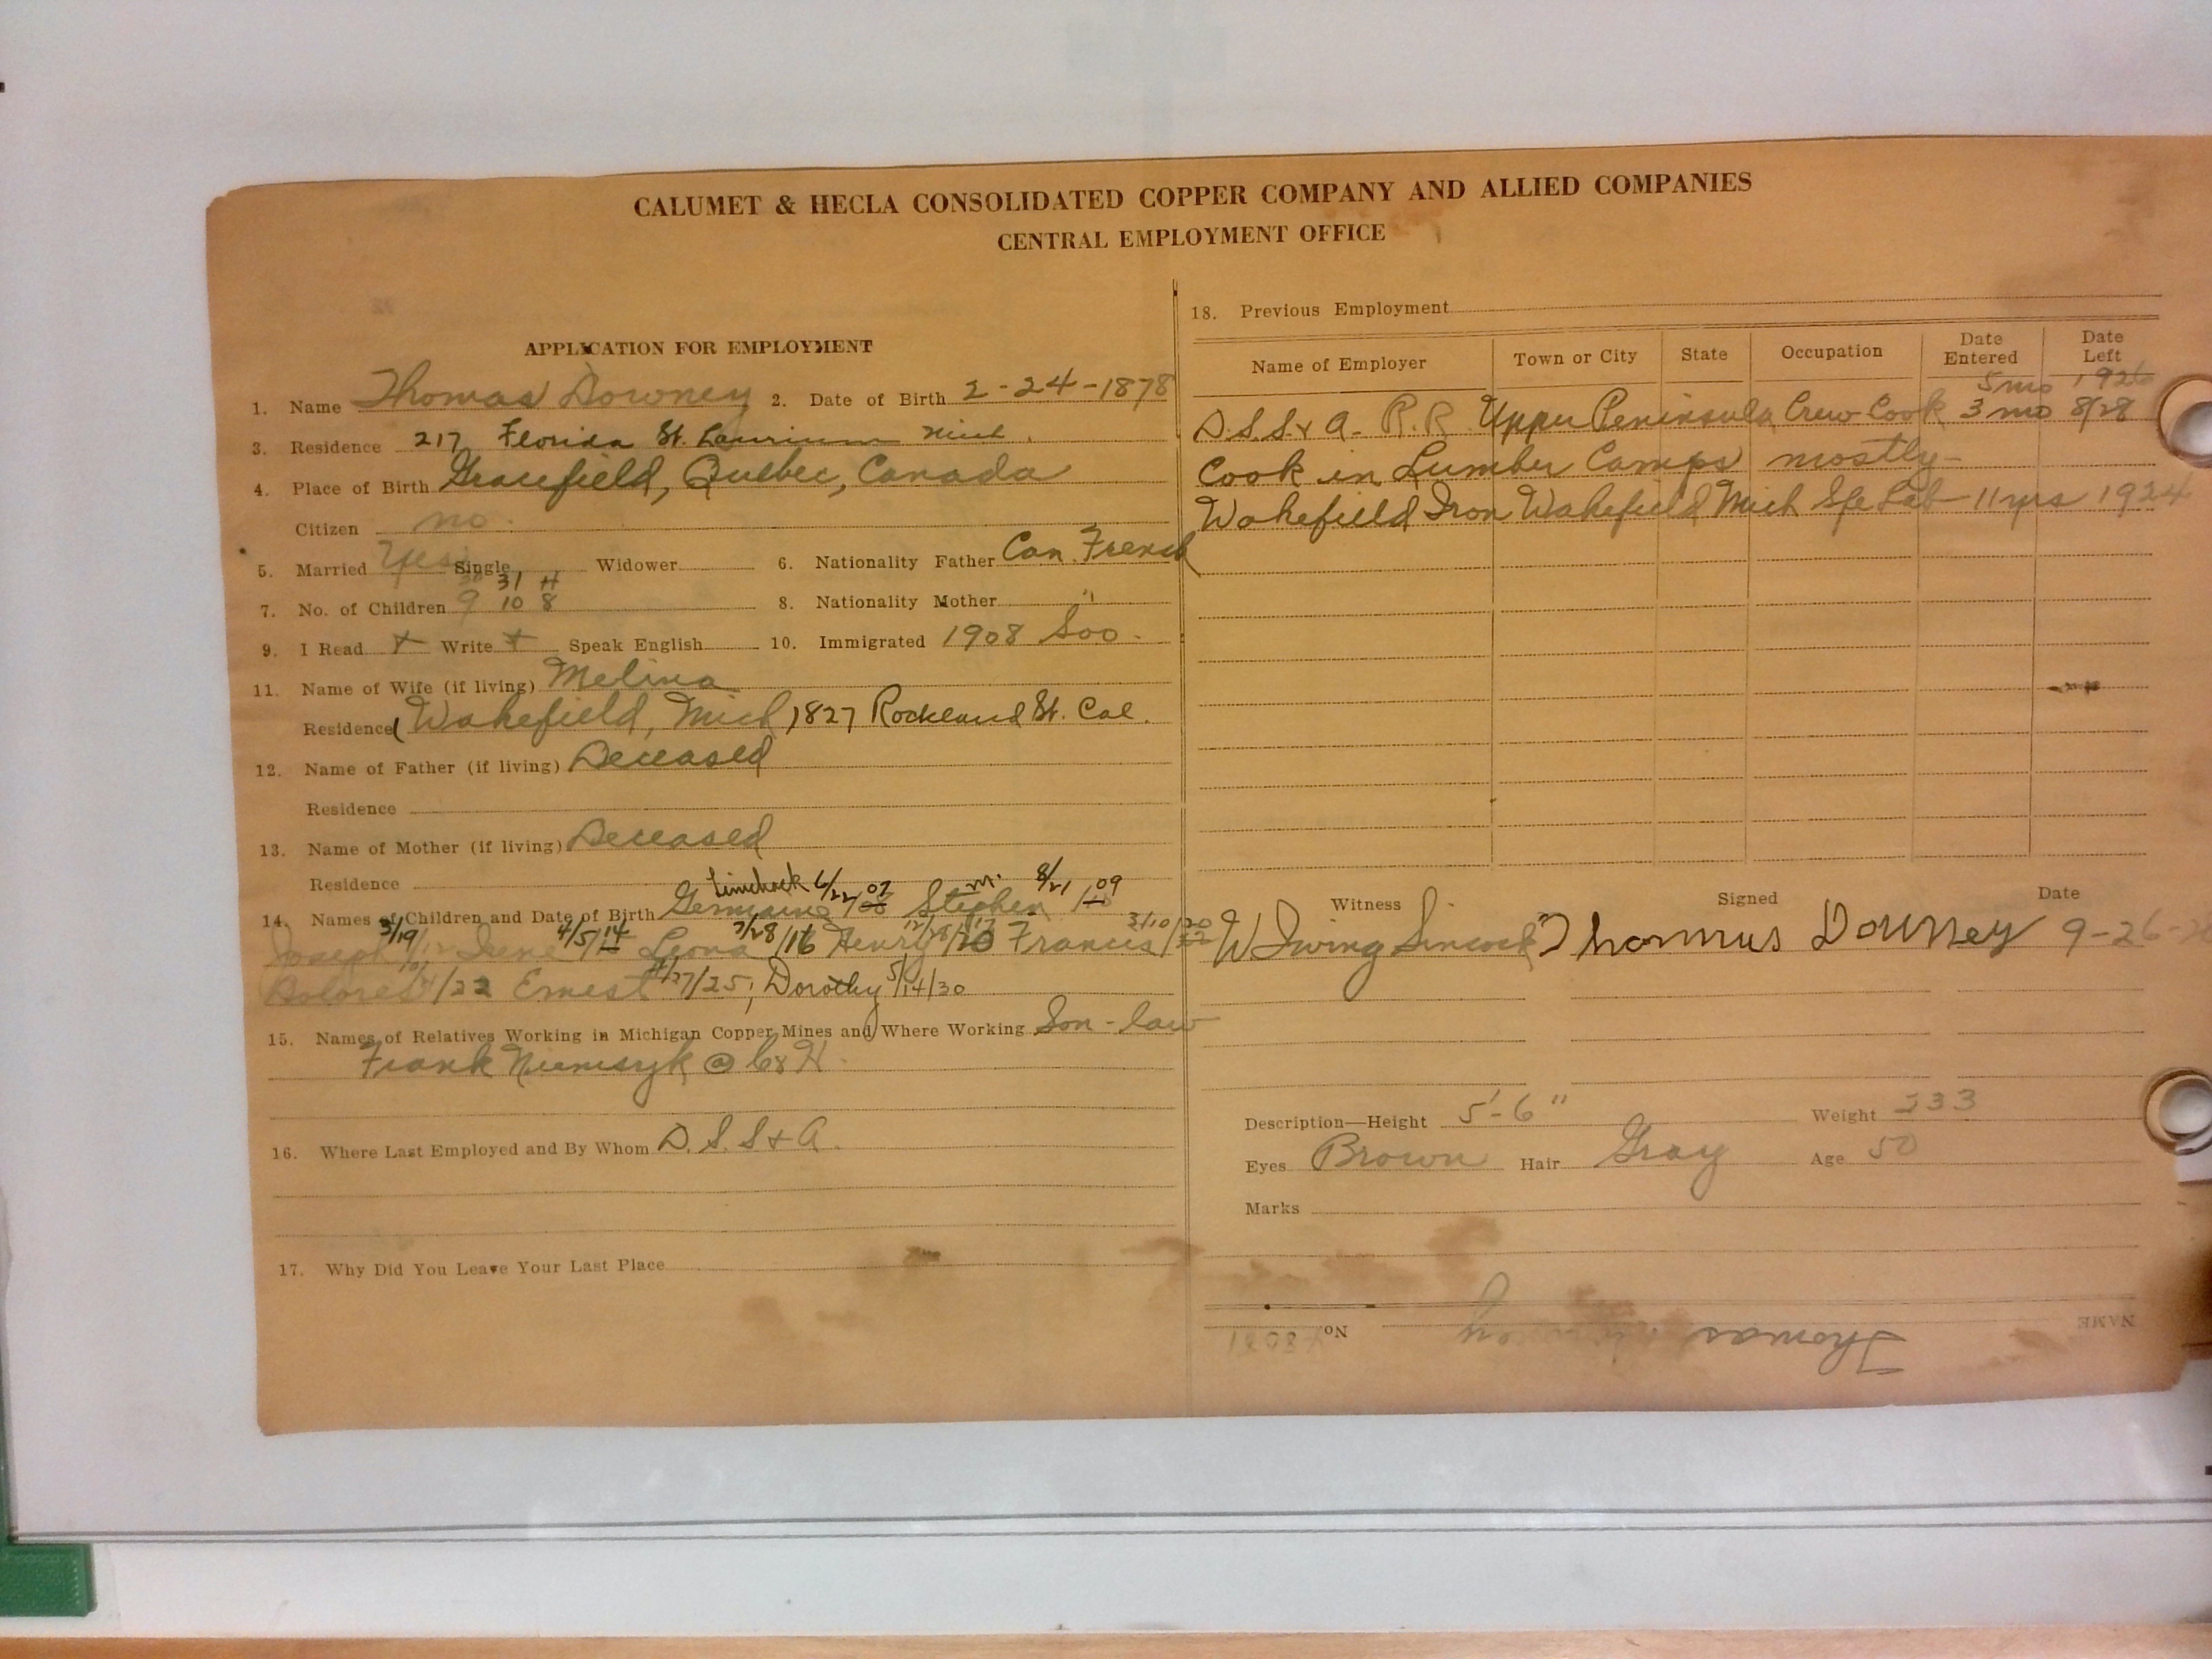 CALUMET & HECLA CONSOLIDATED COPPER COMPANY AND ALLIED COMPANIES
CENTRAL EMPLOYMENT OFFICE
APPLICATION FOR EMPLOYMENT
1. Name Thomas Downey 2. Date of Birth 2-24-1878
3. Residence 217 Florida St. Laurium Mich.
4. Place of Birth Gracefield, Quebec, Canada
Citizen no.
5. Married Yes Single Widower 6. Nationality Father Can. French
30 31 H
7. No. of Children 9 10 8 8. Nationality Mother "
9. I Read + Write + Speak English 10. Immigrated 1908 Soo.
11. Name of Wife (if living) Melina
Residence (Wakefield, Mich) 1827 Rockland St. Cal.
12. Name of Father (if living) Deceased
Residence
13. Name of Mother (if living) Deceased
Residence
6/22/07 m. 8/21/09
14. Names of Children and Date of Birth Germaine Stephen
Joseph 3/19 Irene 4/5/14 Leona 3/28/16 Henry Francis 3/10/20
Dolores /22 Ernest 4/27/25; Dorothy 5/14/30
15. Names of Relatives Working in Michigan Copper Mines and Where Working Son-law
Frank @ C&H.
16. Where Last Employed and By Whom D.S.S&A.
17. Why Did You Leave Your Last Place
18. Previous Employment
Name of Employer Town or City State Occupation Date Entered Date Left
5 mo 1926
D.S.S.&A. R.R. Upper Peninsula Crew Cook 3 mo 8/28
Cook in Lumber Camps mostly-
Wakefield Iron Wakefield Mich Sfe Lab 11 yrs 1924
Witness Signed Date
W Irving Sincock Thommus Downey 9-26-
Description—Height 5'-6" Weight 233
Eyes Brown Hair Gray Age 50
Marks
NAME Thomas No.